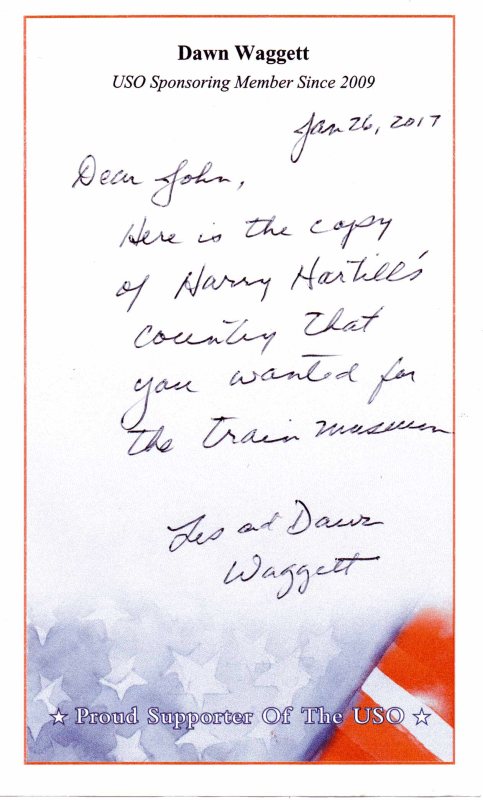 Dawn Waggett
USO Sponsoring Member Since 2009
Jan 26, 2017
Dear John,
Here is the copy
of Harry Hartill's
country that
you wanted for
the train museum
Les and Dawn
Waggett
☆ Proud Supporter Of The USO ☆